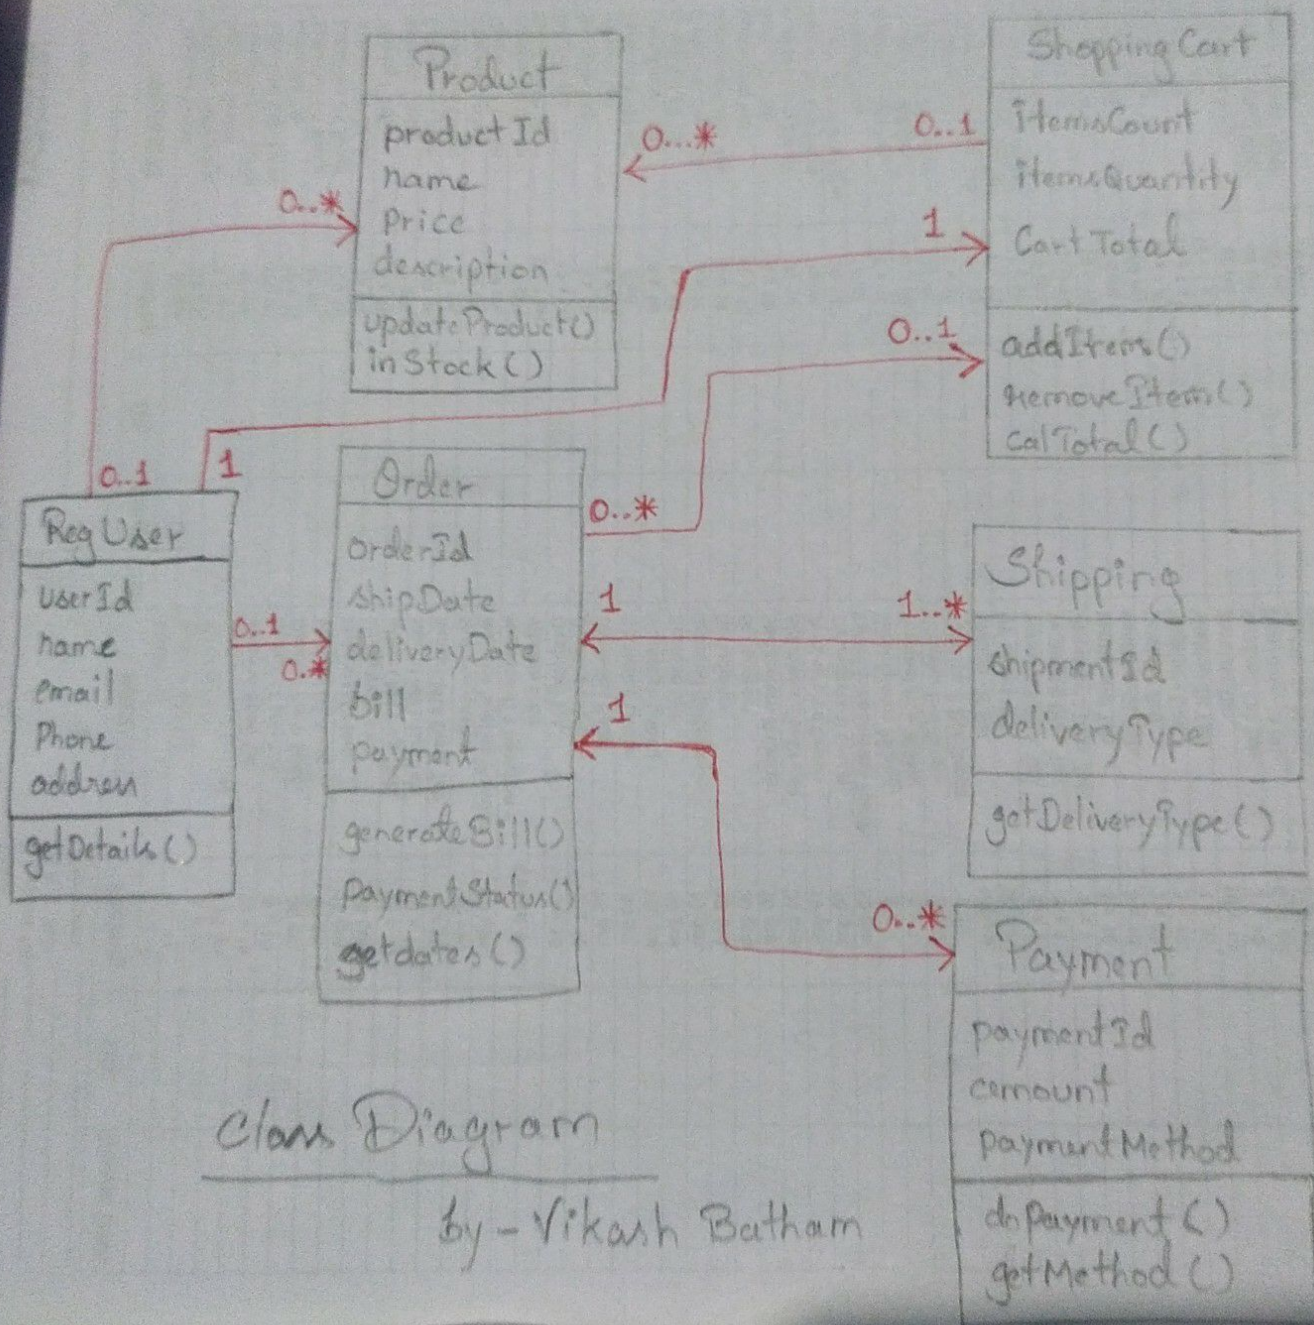 Product
productId
name
Price
description
updateProduct()
inStock()
ShoppingCart
itemsCount
itemsQuantity
CartTotal
addItem()
removeItem()
calTotal()
0...*
0..1
0..*
1
0..1
0..1
1
RegUser
userId
name
email
Phone
address
getDetails()
0..1
0.*
Order
orderId
shipDate
deliveryDate
bill
payment
generateBill()
paymentStatus()
getdates()
0..*
1
1..*
1
0..*
Shipping
shipmentId
deliveryType
getDeliveryType()
Payment
paymentId
amount
paymentMethod
doPayment()
getMethod()
Class Diagram
by - Vikash Batham